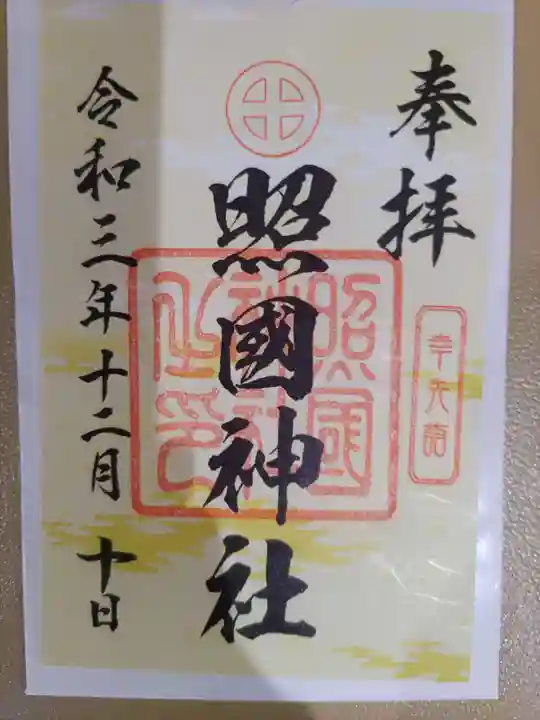 奉拝
照國神社
照國神社之印
令和三年十二月十日